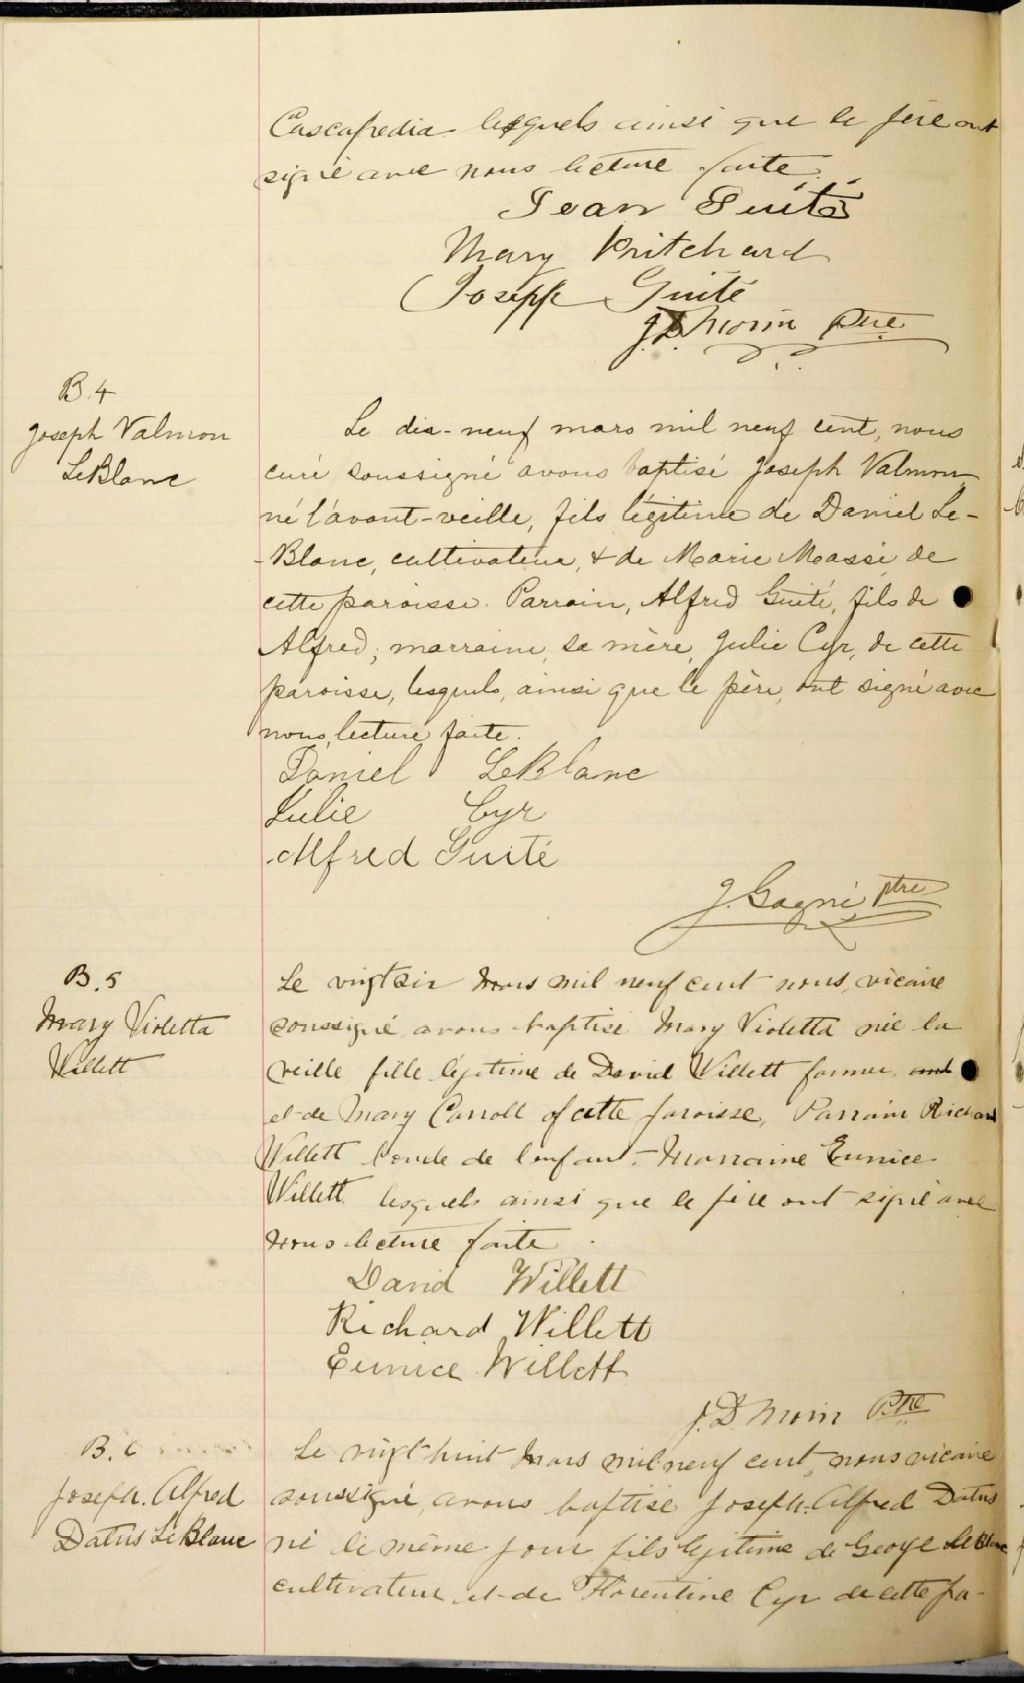 Cascapedia lesquels ainsi que le père ont
signé avec nous lecture faite.
Jean Guité
Mary Pritchard
Joseph Guité
J.D. Morin Ptre
B. 4
Joseph Valmon
LeBlanc
Le dix-neuf mars mil neuf cent, nous
curé soussigné avons baptisé Joseph Valmon,
né l'avant-veille, fils légitime de Daniel Le-
-Blanc, cultivateur, & de Marie Massé de
cette paroisse. Parrain, Alfred Guité, fils de
Alfred; marraine, sa mère, Julie Cyr, de cette
paroisse, lesquels, ainsi que le père, ont signé avec
nous, lecture faite.
Daniel LeBlanc
Julie Cyr
Alfred Guité
J. Gagné, ptre
B. 5
Mary Violetta
Willett
Le vingt six mars mil neuf cent nous, vicaire
soussigné avons baptisé Mary Violetta née la
veille fille légitime de David Willett farmer and
et de Mary Carroll of cette paroisse, Parrain Richard
Willett l'oncle de l'enfant. Marraine Eunice
Willett lesquels ainsi que le père ont signé avec
nous lecture faite.
David Willett
Richard Willett
Eunice Willett
J. D. Morin Ptre
B. 6
Joseph. Alfred
Datus LeBlanc
Le vingt huit mars mil neuf cent, nous vicaire
soussigné, avons baptisé Joseph. Alfred Datus
né le même jour fils légitime de George LeBlanc
cultivateur et de Florentine Cyr de cette pa-